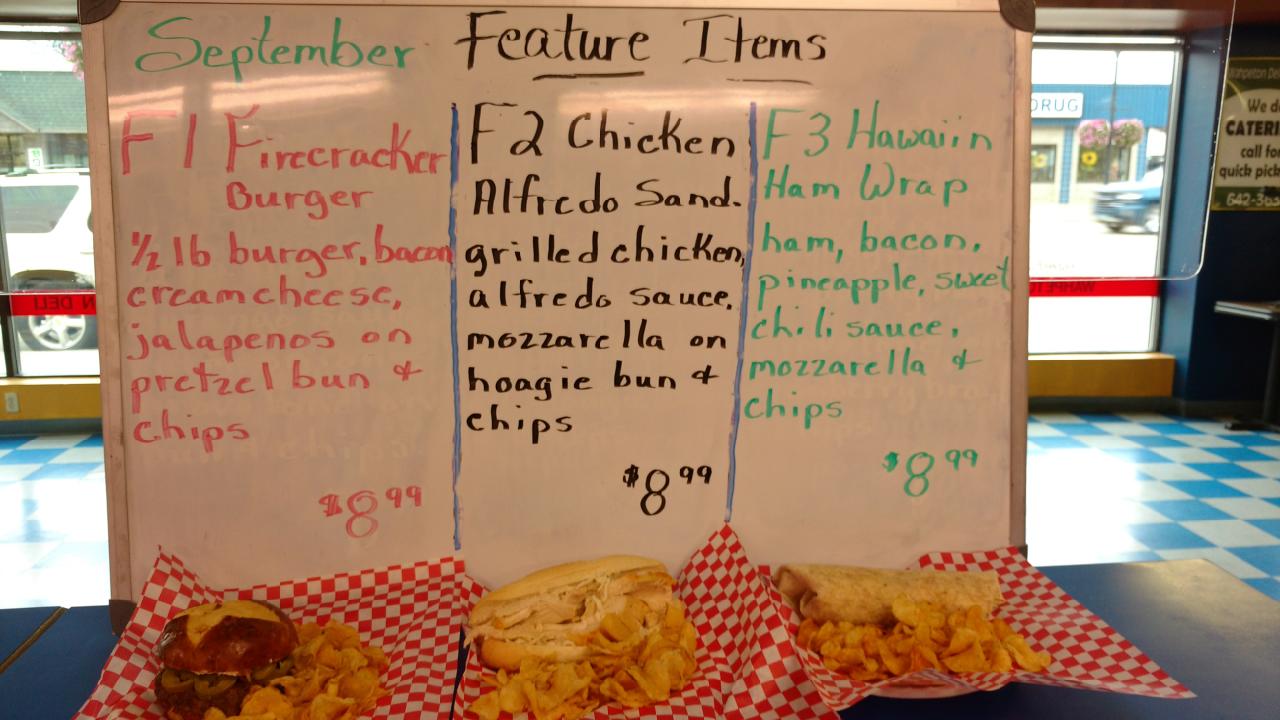 September Feature Items
F1 Firecracker
Burger
½ lb burger, bacon
creamcheese,
jalapenos on
pretzel bun &
chips
$8.99
F2 Chicken
Alfredo Sand.
grilled chicken,
alfredo sauce,
mozzarella on
hoagie bun &
chips
$8.99
F3 Hawaiin
Ham Wrap
ham, bacon,
pineapple, sweet
chili sauce,
mozzarella &
chips
$8.99
DRUG
We d
CATERI
call fo
quick pick
DELI